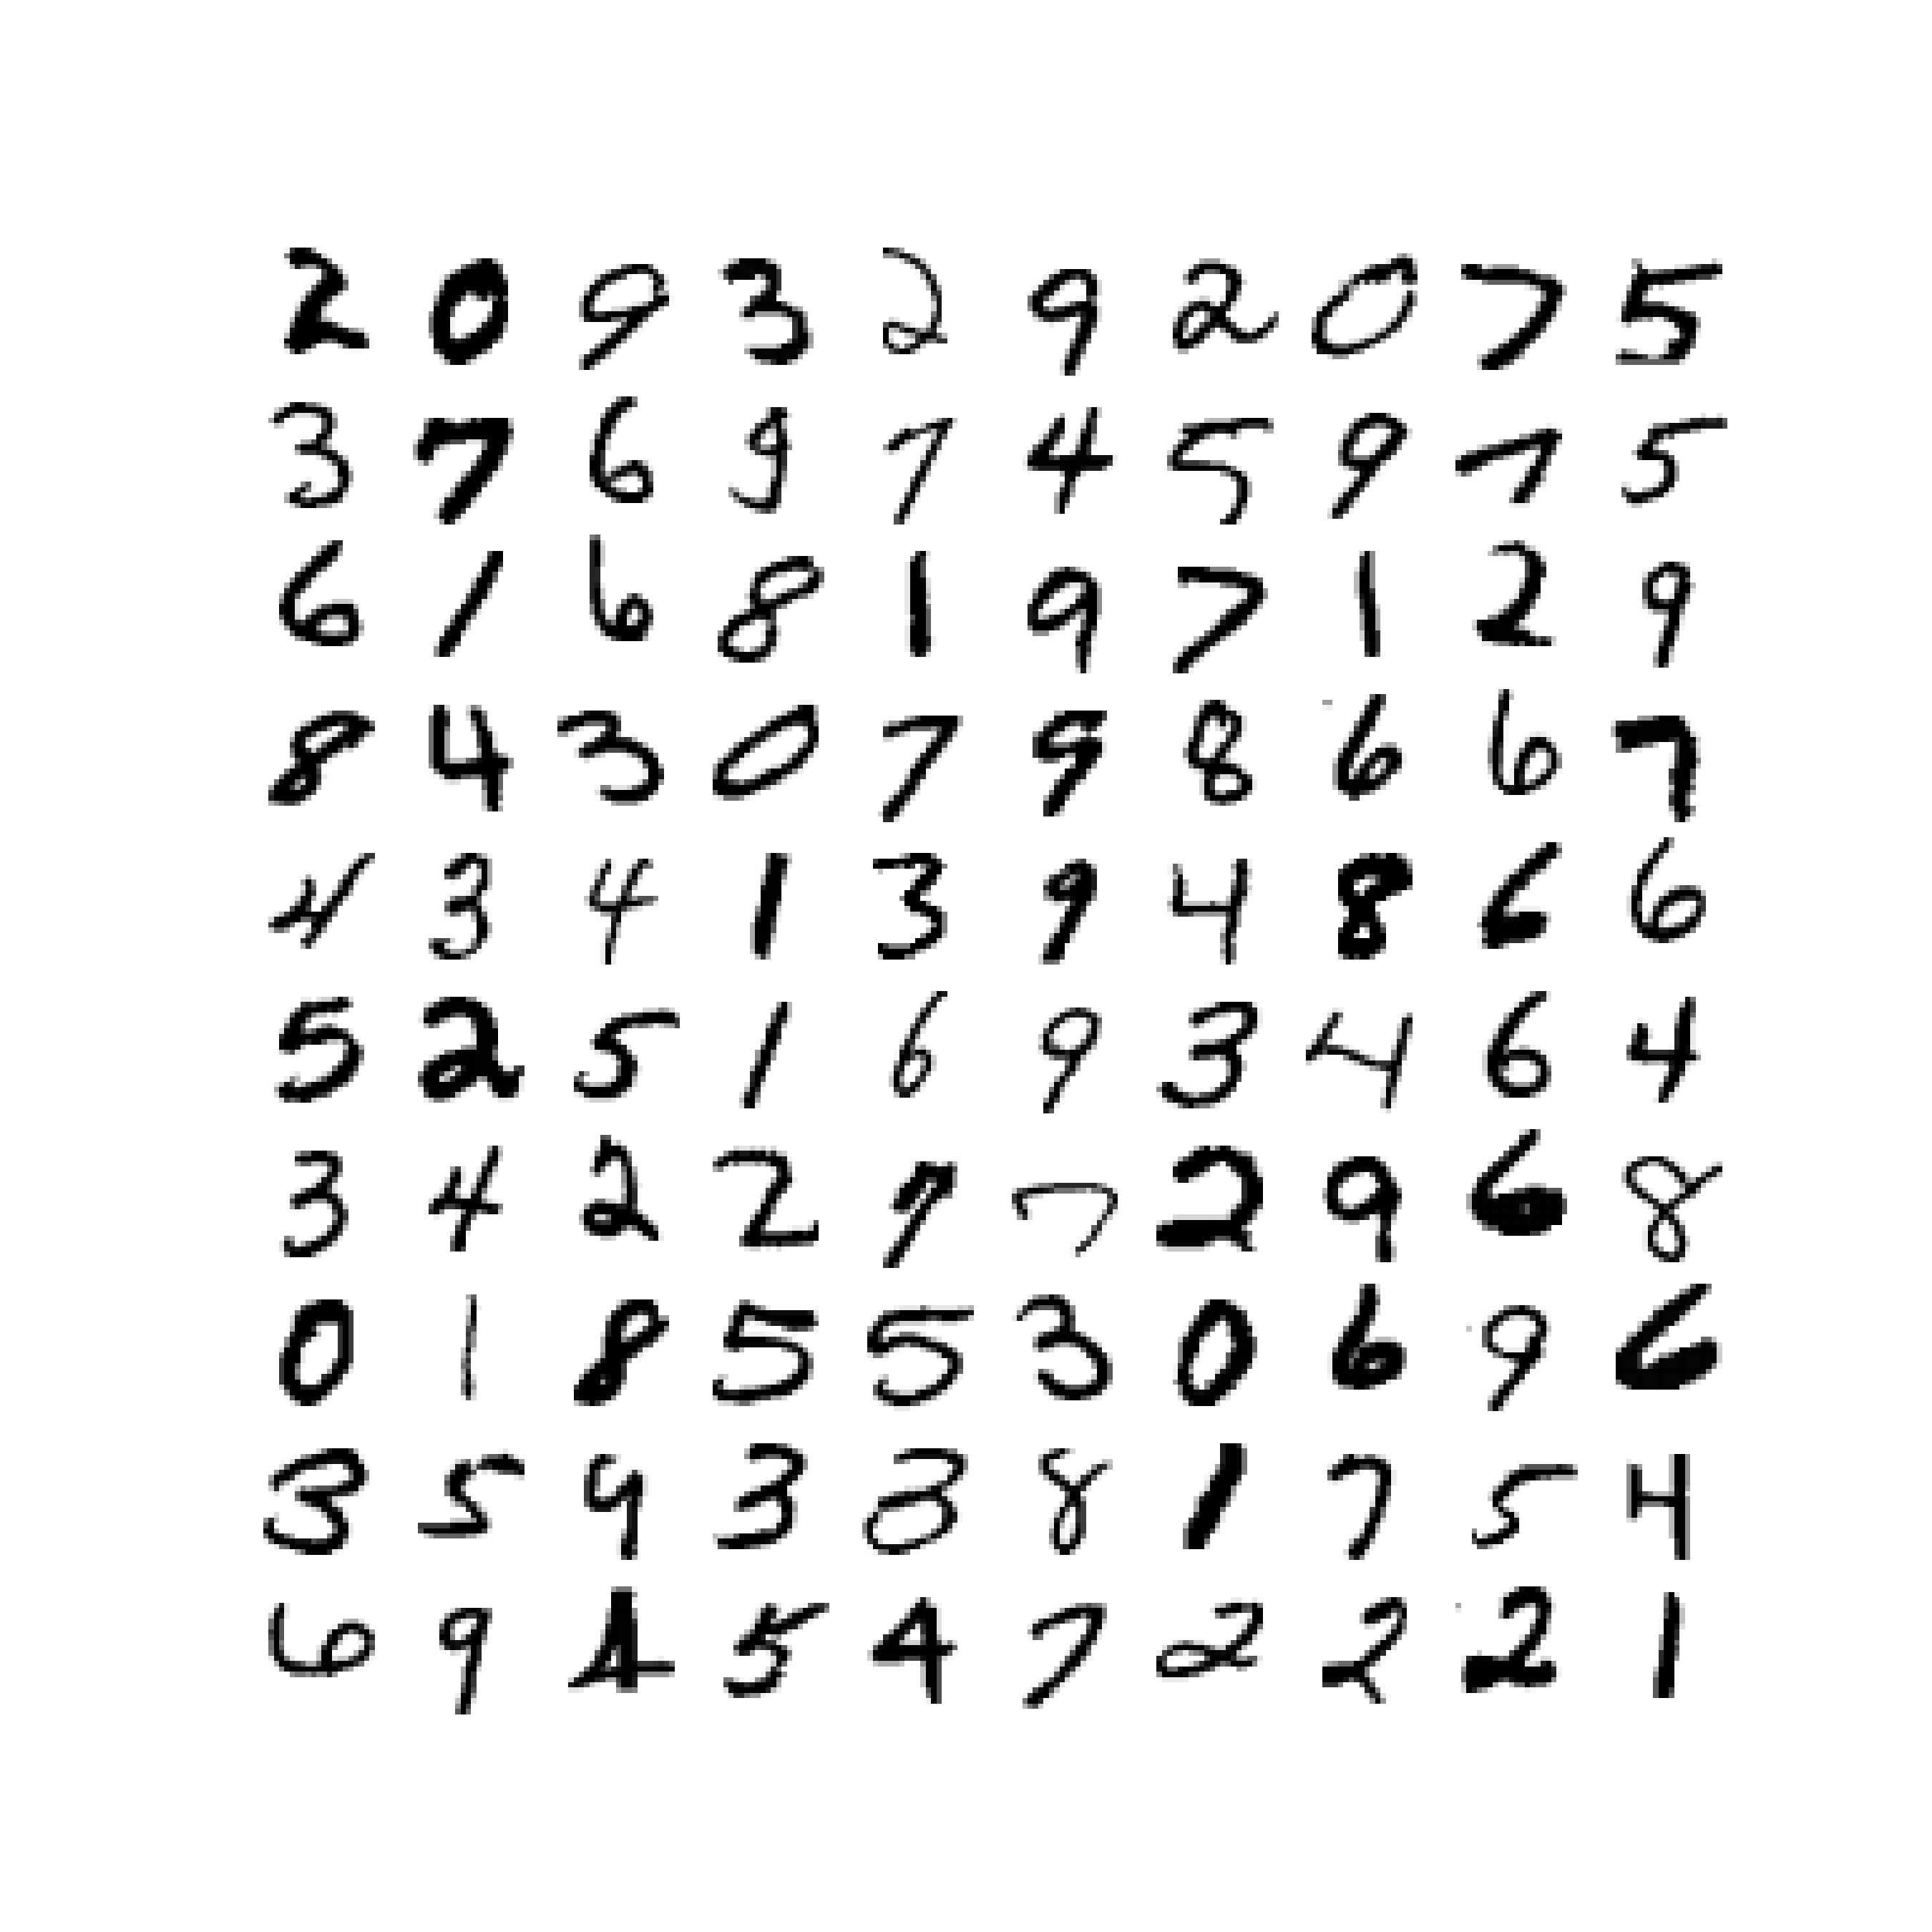 2 0 9 3 2 9 2 0 7 5
3 7 6 9 7 4 5 9 7 5
6 1 6 8 1 9 7 1 2 9
8 4 3 0 7 9 8 6 6 7
4 3 4 1 3 9 4 8 6 6
5 2 5 1 6 9 3 4 6 4
3 4 2 2 9 7 2 9 6 8
0 1 8 5 5 3 0 6 9 6
3 5 9 3 3 8 1 7 5 4
6 9 4 5 4 7 2 2 2 1